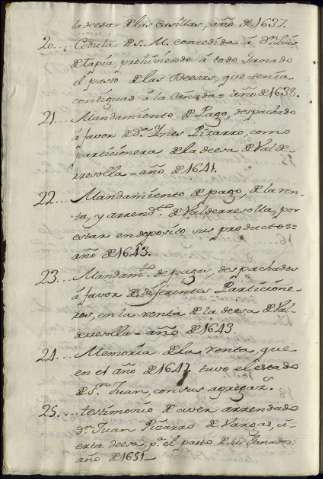 la decsa de las Casillas, año de 1637.
20... de S. M. concedida á
de Tapia, prohiviendo á todo Ganado
el paso de las que tenia
contiguas á la Cañada - año de 1638.
21... Mandamiento de Pago, despachado
á favor de D.ª Ines Pizarro, como
parcionera de la decsa de Val de
rresolla - año de 1641.
22... Mandamiento de pago, de la ren-
ta, y arrend.º de Valderresolla, por
estar en deposito sus productos-
año de 1643.
23... Mandam.to de pago, despachados
á favor de diferentes Particione-
ros, en la renta de la decsa de Val-
rresolla - año de 1643
24... Memoria de la renta, que
en el año de 1647 tuvo el estado
de S.n Juan, con sus agregaz.s
25... testimonio de aver arrendado
D.n Juan Pizarro de Vargas, ci-
erta decsa p.ª el pasto de sus Ganados
año de 1651-